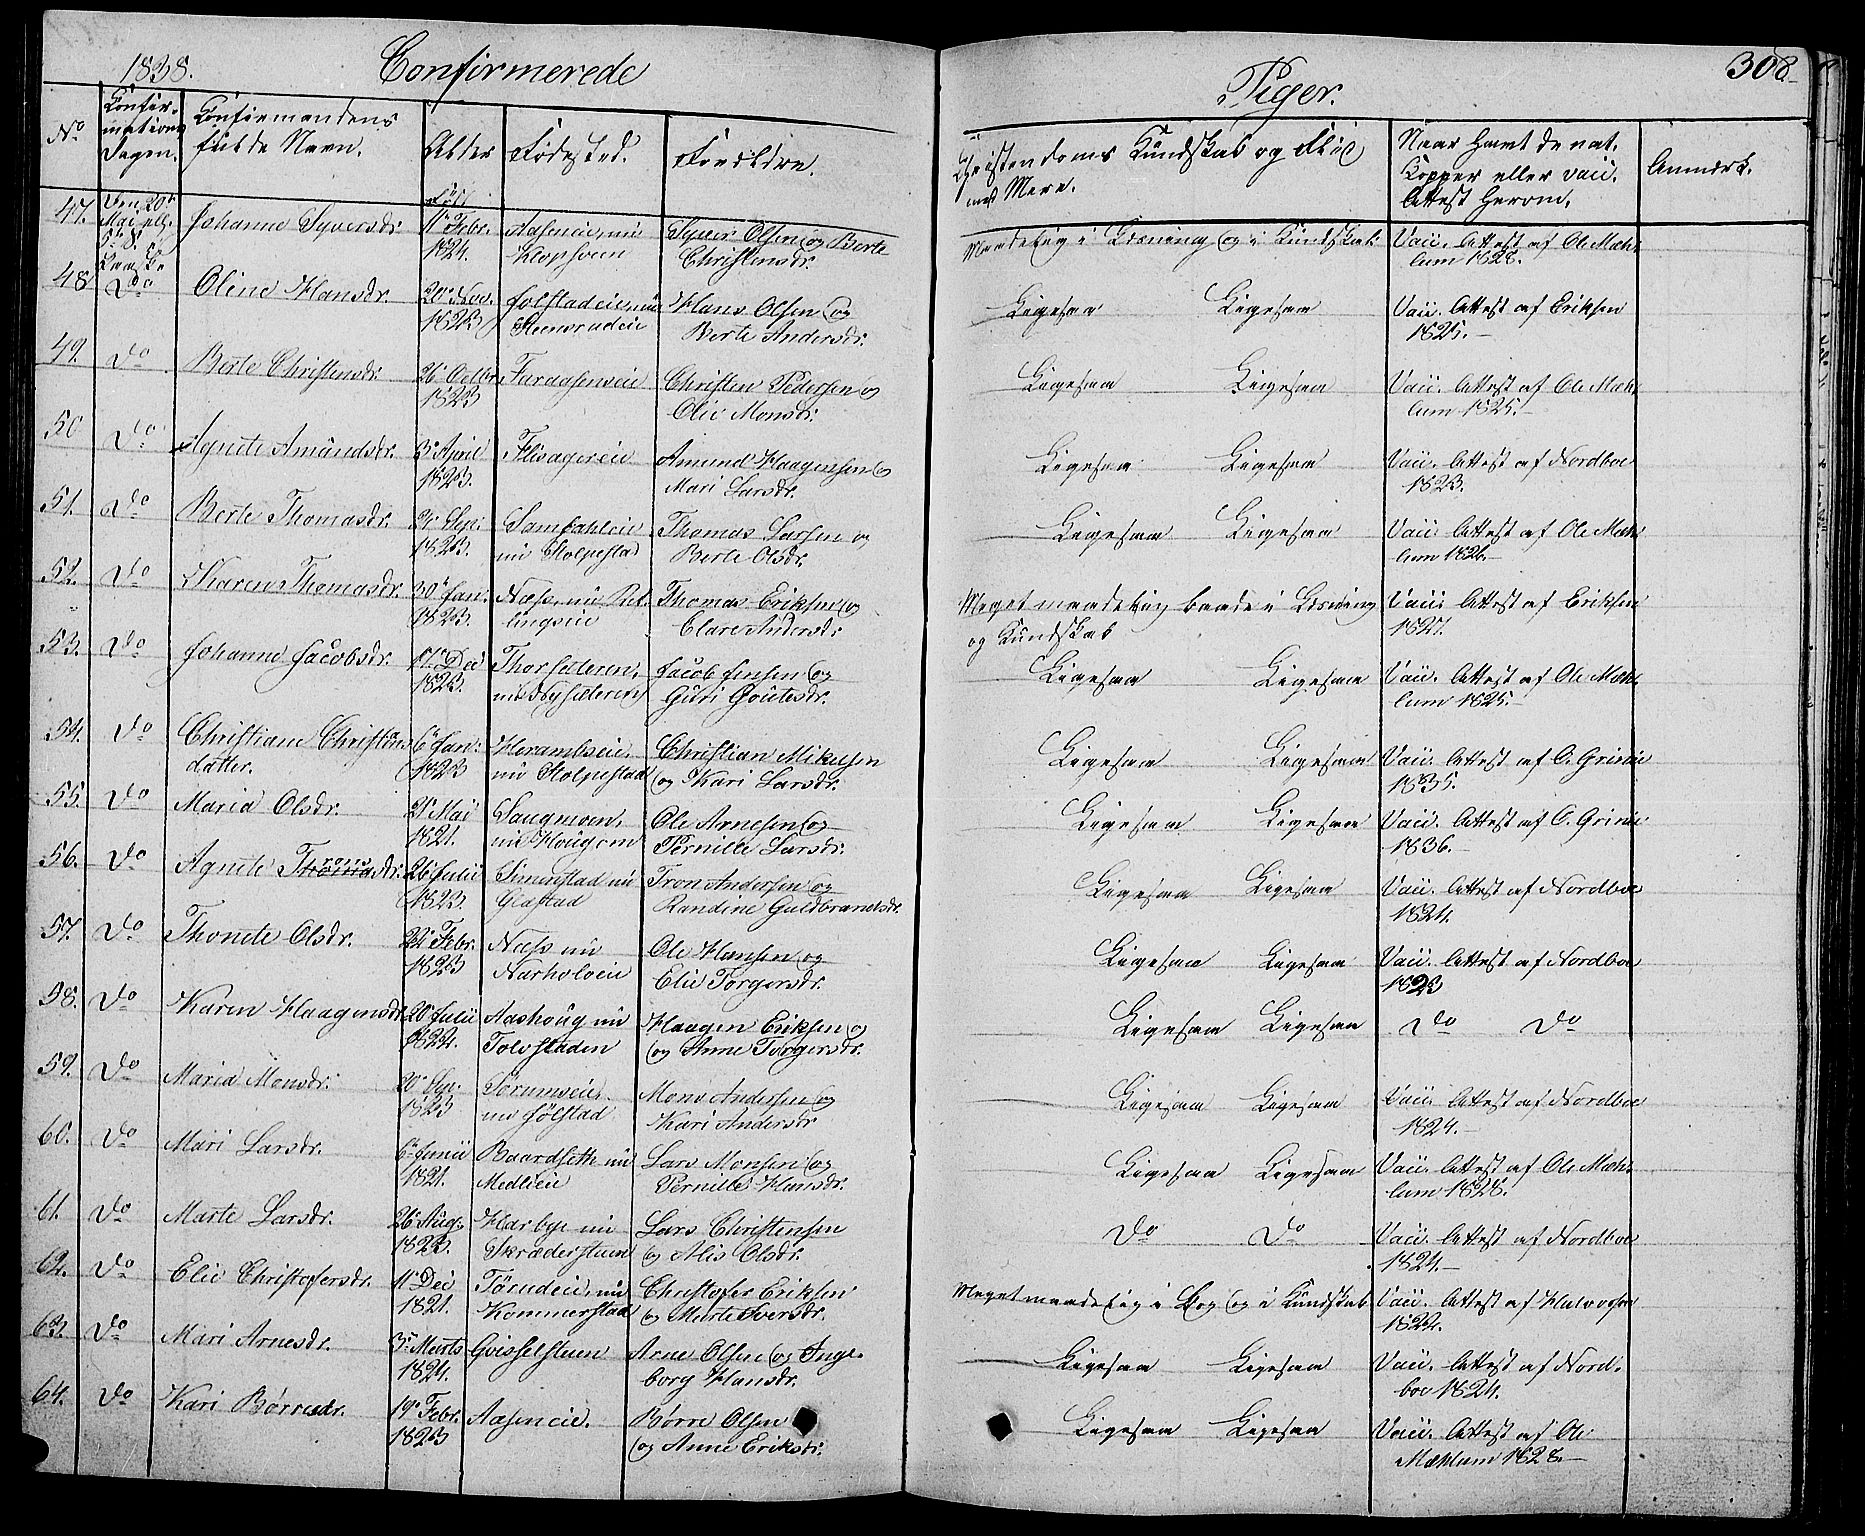 1838.
Confirmerede
Piger.
308
No
Confir-
mations
Dagen.
Confirmandens
fulde Navn.
Alder
Fødested.
Forældre.
Christendoms Kundskab og Flid
med Mere.
Naar Havt de nat.
Kopper eller vacc.
Attest herom.
Anmærk.
47. Den 20de Mai Johanne Syversdr. 11te Febr. 1824. Aaseneie, nu Klopsveen Syver Olsen og Berte Christensdr. Maadelig i Læsning og i Kundskab. Vacc. Attest af Ole Mæh-
lum 1828.
48 Do Oline Hansdr. 20de Nov. 1823 Jølstadeie, nu Steensrudeie Hans Olsen og Berte Andersdr. Ligesaa Ligesaa Vacc. Attest af Eriksen
1825.
49. Do Berte Christensdr. 26de Octbr. 1823 Faraasenseie Christen Pedersen og Olie Monsdr. Ligesaa Ligesaa Vacc. Attest af Ole Mæh-
lum 1825.
50 Do Agnete Amundsdr. 3de April 1823. Flisagereie Amund Haagensen og Mari Larsdr. Ligesaa Ligesaa Vacc. Attest af Nordboe
1823.
51. Do Berte Thomasdr. Sep. 1823. nu Stolpestad Thomas Larsen og Berte Olsdr. Ligesaa Ligesaa Vacc. Attest af Ole Mæh-
lum 1826.
52. Do Karen Thomasdr. 30te Jan. 1823. Næss, nu Ret-
lingseie Thomas Eriksen og Clare Andersdr. Meget maadelig baade i Læsning
og Kundskab Vacc. Attest af Eriksen
1827.
53. Do Johanne Jacobsdr. 17de Dec 1823. Thorsæteren, nu Nysæteren Jacob Jensen og Guri Goutesdr. Ligesaa Ligesaa Vacc. Attest af Ole Mæh-
lum 1825.
54. Do Christiane Christians
datter. 6te Jan: 1823 Herambseie, nu Stolpestad Christian Mikelsen
og Kari Larsdr. Ligesaa Ligesaa Vacc. Attest af C. Grieie
1835.
55. Do Maria Olsdr. 21de Mai 1821. Saugmoen, nu Hougom Ole Arnesen og
Pernille Larsdr. Ligesaa Ligesaa Vacc. Attest af C. Grieie
1836.
56. Do Agnete Tronsdr. 26de Julii 1823 Simenstad nu
Glastad Tron Andersen og
Randine Guldbrandsdr. Ligesaa Ligesaa Vacc. Attest af Nordboe
1824.
57. Do Thonete Olsdr. 22de Febr. 1823 Næss nu
Narholoeie Ole Hansen og
Elie Torgersdr. Ligesaa Ligesaa Vacc. Attest af Nordboe
1823
58. Do Karen Haagensdr. 20de Julii 1822. Aashoug nu
Tolvstaden Haagen Eriksen og
og Anne Torgersdr. Ligesaa Ligesaa Do Do
59. Do Maria Monsdr. 20de Sep. 1823 Sørumseie,
nu Jølstad Mons Andersen og
Kari Andersdr Ligesaa Ligesaa Vacc. Attest af Nordboe
1824.
60. Do Mari Larsdr. 6te Junii 1821. Baardseth nu
Medlieie Lars Monsen og
Pernille Hansdr. Ligesaa Ligesaa Vacc. Attest af Ole Mæh-
lum 1828.
61. Do Marte Larsdr. 26de Aug. 1823. Harbye nu
Skræderstuen Lars Christensen
og Alis Olsdr. Do Do Vacc. Attest af Nordboe
1824.
62. Do Elie Christophersdr. 11te Dec 1821. Tørudeie, nu
Kommerstad Christofer Eriksen
og Marte Iversdr. Meget maadelig i Bog og i Kundskab Vacc. Attest af Halvorsen
1822.
63. Do Mari Arnesdr. 3de Marts 1824. Gvisselstuen Arne Olsen og Inge-
borg Hansdr. Ligesaa Ligesaa Vacc. Attest af Nord-
boe 1824.
64. Do Kari Børresdr. 19de Febr. 1823 Aaseneie. Børre Olsen
og Anne Eriksdr. Ligesaa Ligesaa Vacc. Attest af Ole
Mæhlum 1828.